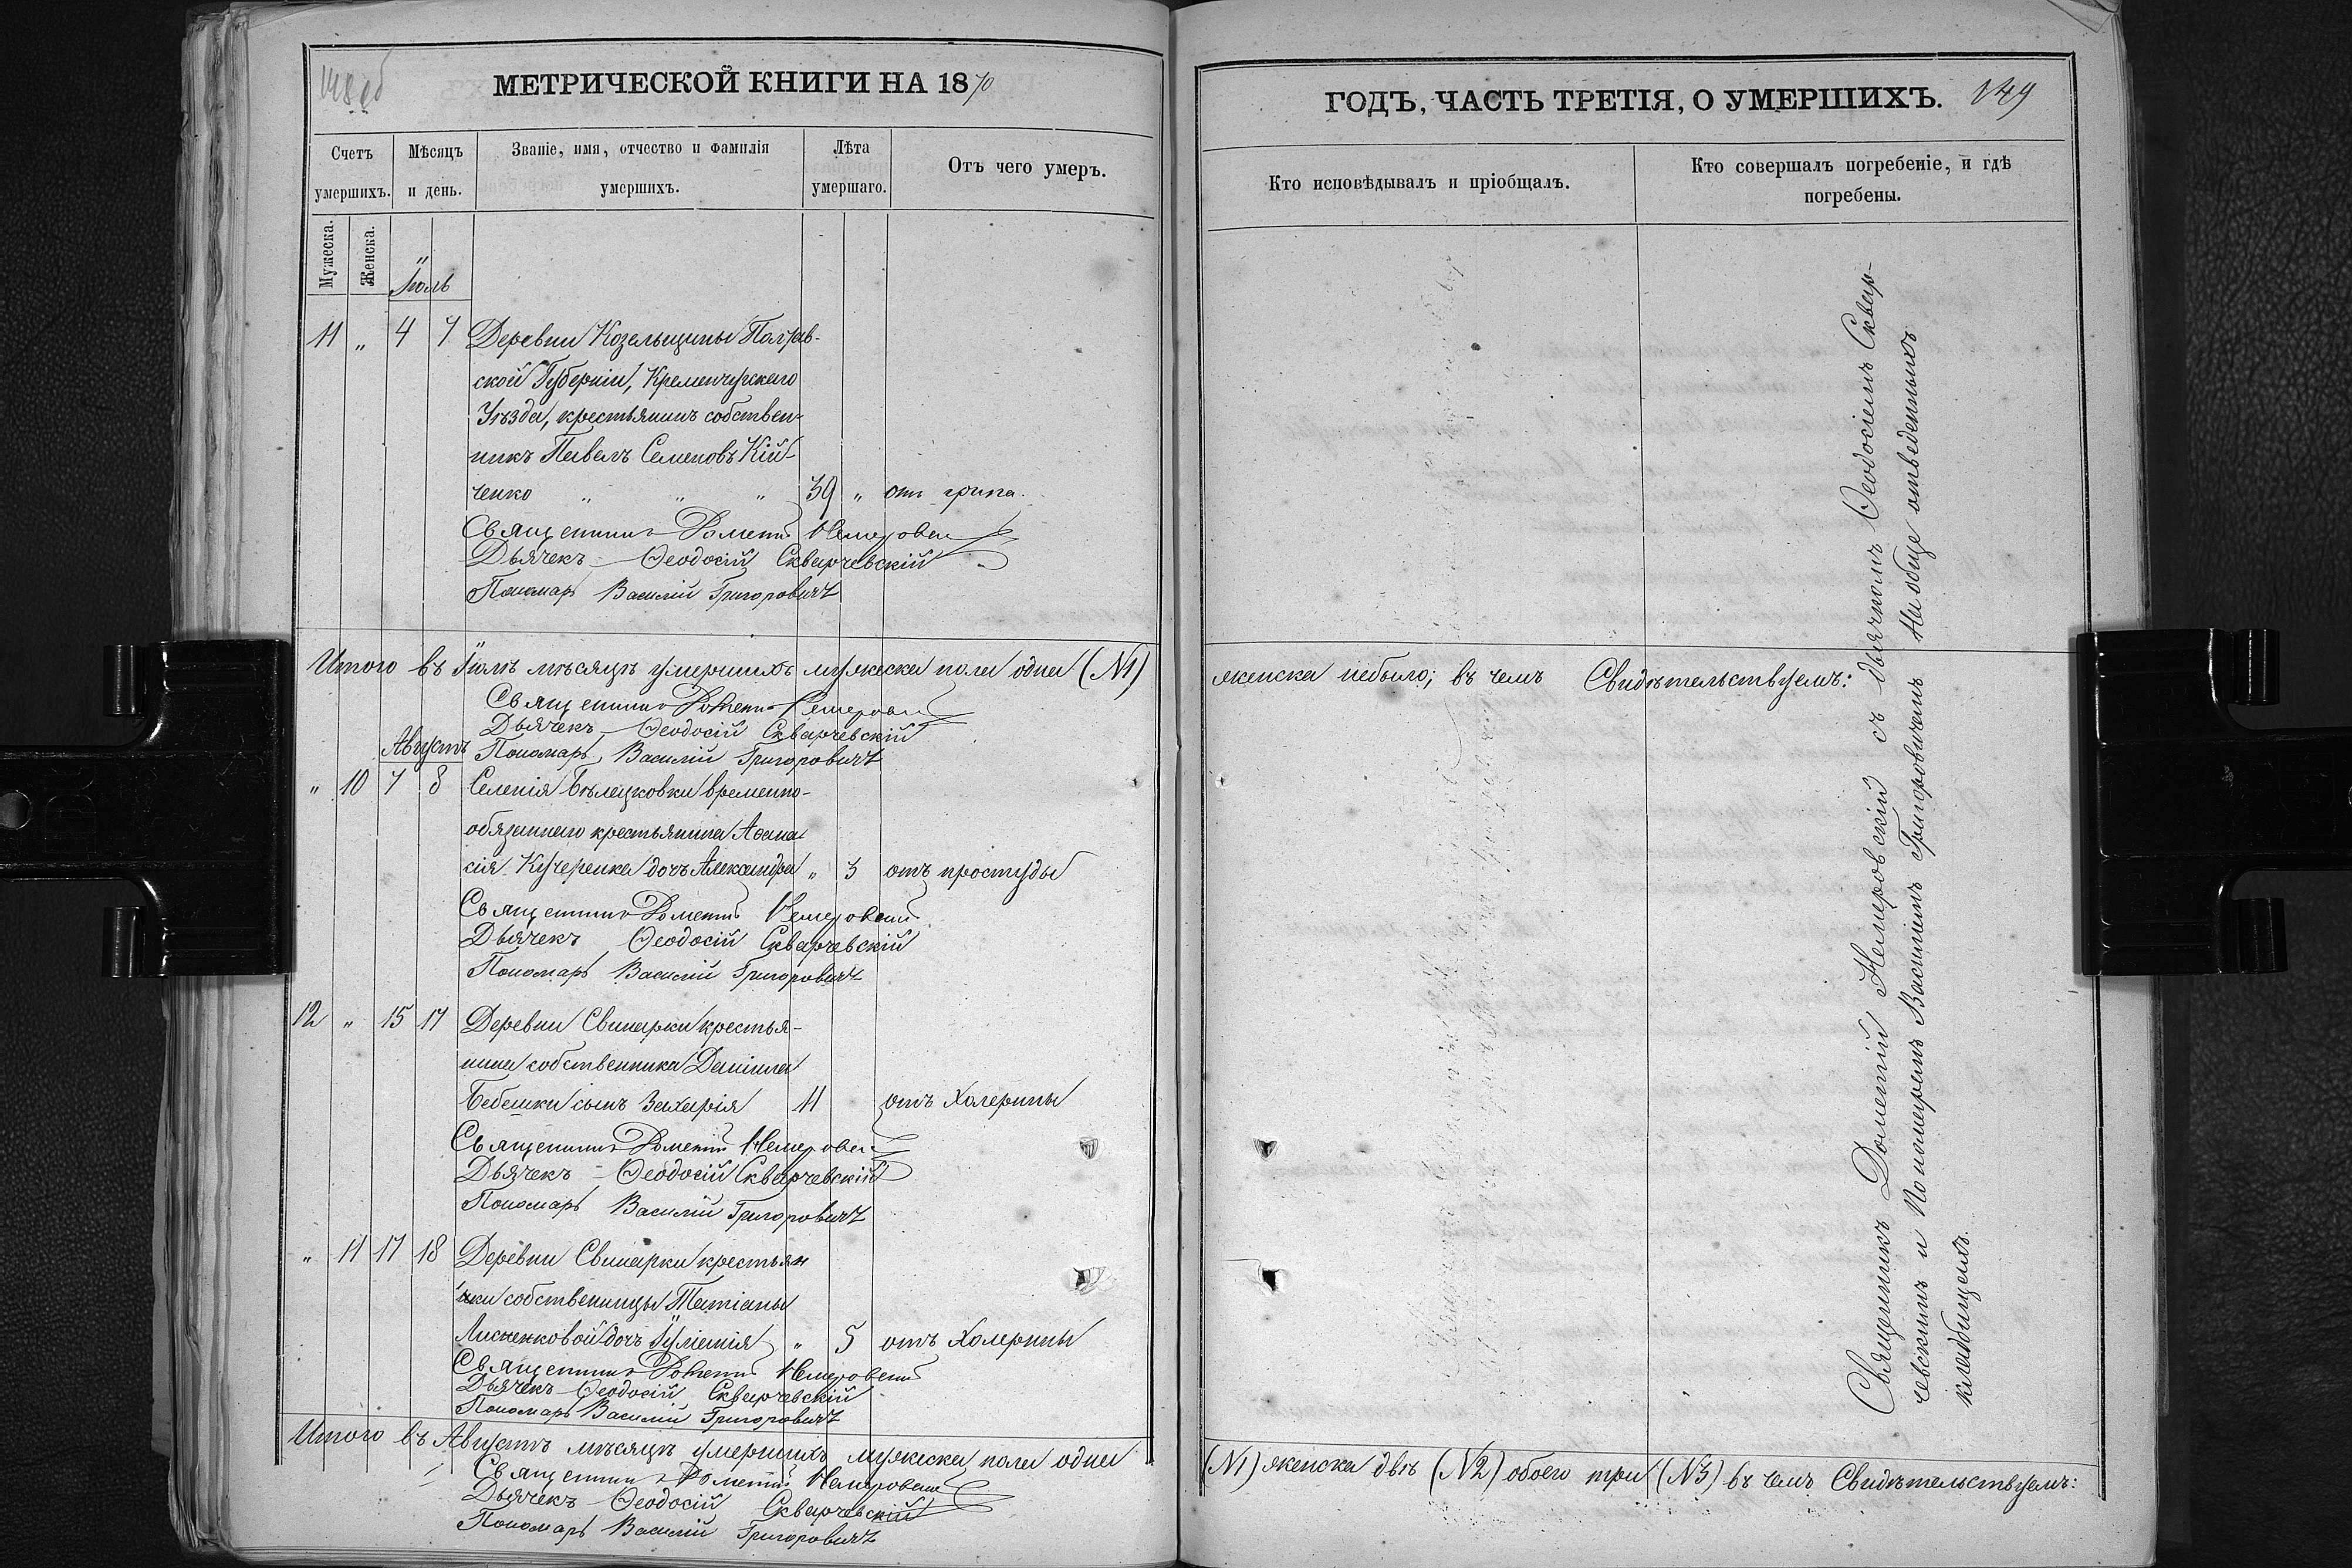 148 об
МЕТРИЧЕСКОЙ КНИГИ НА 1870
Счетъ умершихъ.
Мѣсяцъ и день.
Званіе, имя, отчество и фамилія умершихъ.
Лѣта умершаго.
Отъ чего умеръ.
Мужеска.
Женска.
Іюль
11 „ 4 7 Деревни Козельщины Полтав-
ской Губерніи, Кременчугскаго
Уѣзда, крестьянинъ собствен-
никъ Павелъ Семеновъ Кій-
ченко „ „ „ 39 „ отъ грипа.
Священникъ Дометій Немеровскій
Дьячекъ Ѳеодосій Скварчевскій
Пономарь Василій Григоровичъ
Итого въ Іюлѣ мѣсяцѣ умершихъ мужеска пола одинъ (№1)
Священникъ Дометій Немеровскій
Дьячекъ Ѳеодосій Скварчевскій
Пономарь Василій Григоровичъ
Августъ
„ 10 7 8 Селенія Бѣлецковки временно-
обязаннаго крестьянина Аѳана
сія Кучеренка дочь Александра „ 3 отъ простуды
Священникъ Дометій Немеровскій
Дьячекъ Ѳеодосій Скварчевскій
Пономарь Василій Григоровичъ
12 „ 15 17 Деревни Свинарки крестья-
нина собственника Даніила
Бебешки сынъ Захарія 11 отъ Холерины
Священникъ Дометій Немеровскій
Дьячекъ Ѳеодосій Скварчевскій
Пономарь Василій Григоровичъ
„ 11 17 18 Деревни Свинарки крестьян
ки собственницы Татіаны
Лисненковой дочь Іуліанія „ 5 отъ Холерины
Священникъ Дометій Немеровскій
Дьячекъ Ѳеодосій Скварчевскій
Пономарь Василій Григоровичъ
Итого въ Августѣ мѣсяцѣ умершихъ мужеска пола одинъ
Священникъ Дометій Немеровскій
Дьячекъ Ѳеодосій Скварчевскій
Пономарь Василій Григоровичъ
ГОДЪ, ЧАСТЬ ТРЕТІЯ, О УМЕРШИХЪ. 149
Кто исповѣдывалъ и пріобщалъ.
Кто совершалъ погребеніе, и гдѣ погребены.
женска небыло; въ чемъ Свидѣтельствуемъ:
Священникъ Дометій Немеровскій съ дьячкомъ Ѳеодосіемъ Сквар-
чевскимъ и Пономаремъ Василіемъ Григоровичемъ На обще отведенныхъ
кладбищахъ.
(№1) женска двѣ (№2) обоего три (№3) въ чемъ Свидѣтельствуемъ: